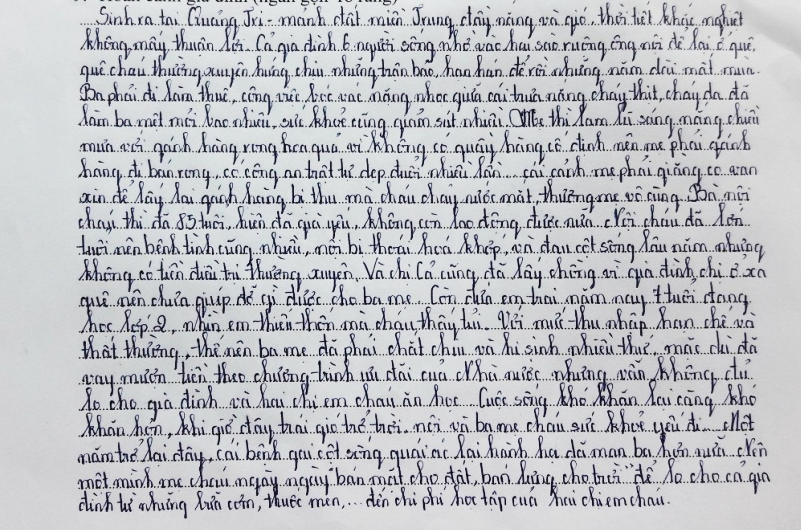 Sinh ra tại Quảng Trị - mảnh đất miền Trung đầy nắng và gió, thời tiết khắc nghiệt
không mấy thuận lợi. Cả gia đình 6 người sống nhờ vào hai sào ruộng ông nội để lại, ở quê,
quê cháu thường xuyên hứng chịu những trận bão, hạn hán để rồi những năm dài mất mùa.
Ba phải đi làm thuê, công việc bốc vác nặng nhọc giữa cái trưa nắng cháy thịt, cháy da đã
làm ba mệt mỏi bao nhiêu, sức khoẻ cũng giảm sút nhiều. Mẹ thì lam lũ sáng nắng chiều
mưa với gánh hàng rong hoa quả vì không có quầy hàng cố định nên mẹ phải gánh
hàng đi bán rong, có công an trật tự dẹp đuổi nhiều lần... cái cảnh mẹ phải giằng co van
xin để lấy lại gánh hàng bị thu mà cháu chảy nước mắt, thương mẹ vô cùng. Bà nội
cháu thì đã 85 tuổi, hiện đã già yếu, không còn lao động được nữa. Nội cháu đã lớn
tuổi nên bệnh tình cũng nhiều, nội bị thoái hoá khớp, và đau cột sống lâu năm nhưng
không có tiền điều trị thường xuyên. Và chị Cả cũng đã lấy chồng vì gia đình chị ở xa
quê nên chưa giúp đỡ gì được cho ba mẹ. Còn đứa em trai năm nay 7 tuổi đang
học lớp 2, nhìn em thiếu thốn mà cháu thấy tủi. Với mức thu nhập hạn chế và
thất thường, thế nên ba mẹ đã phải chắt chiu và hi sinh nhiều thứ, mặc dù đã
vay mượn tiền theo chương trình ưu đãi của Nhà nước nhưng vẫn không đủ
lo cho gia đình và hai chị em cháu ăn học. Cuộc sống khó khăn lại càng khó
khăn hơn, khi giờ đây trái gió trở trời nội và ba mẹ cháu sức khoẻ yếu đi. Một
năm trở lại đây, cái bệnh gai cột sống quái ác lại hành hạ dã man ba hơn nữa. Nên
một mình mẹ cháu ngày ngày "bán mặt cho đất, bán lưng cho trời" để lo cho cả gia
đình từ những bữa cơm, thuốc men,... đến chi phí học tập của hai chị em cháu.